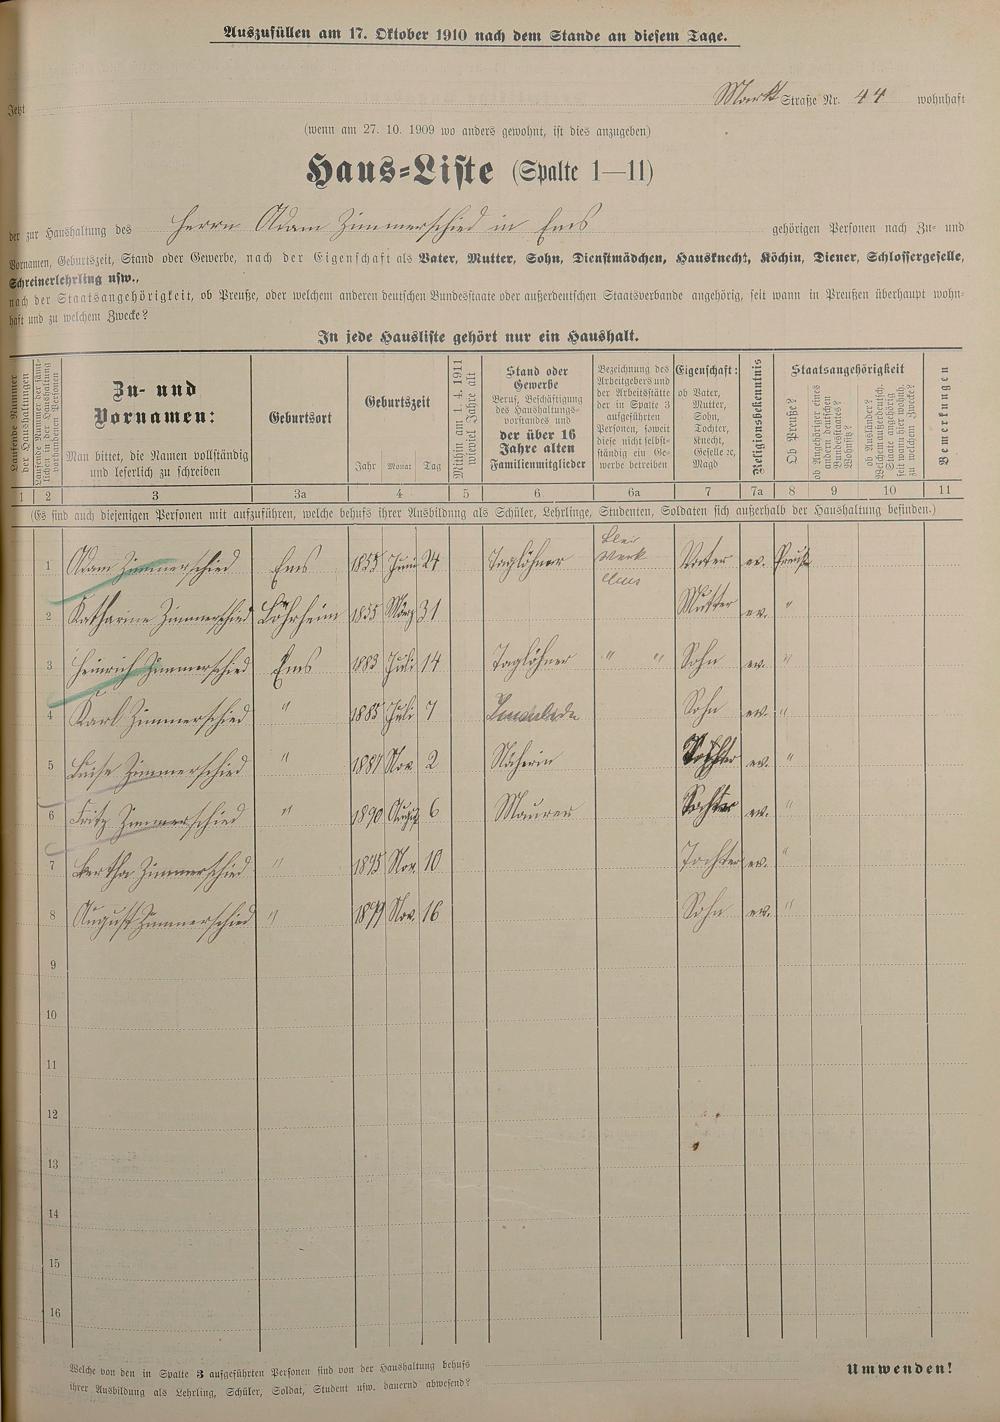 Auszufüllen am 17. Oktober 1910 nach dem Stande an diesem Tage.
Jetzt Markt Straße Nr. 44 wohnhaft
(wenn am 27. 10. 1909 wo anders gewohnt, ist dies anzugeben)
Haus=Liste (Spalte 1—11)
der zur Haushaltung des Herrn Adam Zimmerschied in Ems gehörigen Personen nach Zu- und
Vornamen, Geburtszeit, Stand oder Gewerbe, nach der Eigenschaft als Vater, Mutter, Sohn, Dienstmädchen, Hausknecht, Köchin, Diener, Schlossergeselle,
Schreinerlehrling usw.,
nach der Staatsangehörigkeit, ob Preuße, oder welchem anderen deutschen Bundesstaate oder außerdeutschen Staatsverbande angehörig, seit wann in Preußen überhaupt wohn-
haft und zu welchem Zwecke?
In jede Hausliste gehört nur ein Haushalt.
Laufende Nummer der Haushaltungen
Laufende Nummer der sämt-
lichen in der Haushaltung
vorhandenen Personen
Zu- und
Vornamen:
Man bittet, die Namen vollständig
und leserlich zu schreiben
Geburtsort
Geburtszeit
Jahr Monat Tag
Mithin am 1. 4. 1911
wieviel Jahre alt
Stand oder
Gewerbe
Beruf, Beschäftigung
des Haushaltungs-
vorstandes und
der über 16
Jahre alten
Familienmitglieder
Bezeichnung des
Arbeitgebers und
der Arbeitsstätte
der in Spalte 3
aufgeführten
Personen, soweit
diese nicht selbst-
ständig ein Ge-
werbe betreiben
Eigenschaft:
ob Vater,
Mutter,
Sohn,
Tochter,
Knecht,
Geselle ꝛc,
Magd
Religionsbekenntnis
Staatsangehörigkeit
Ob Preuße?
ob Angehöriger eines
andern deutschen
Bundesstaates?
Wohnsitz?
ob Ausländer?
Welchem außerdeutsch.
Staate angehörig
seit wann hier wohnh.
zu welchem Zwecke?
Bemerkungen
1 2 3 3a 4 5 6 6a 7 7a 8 9 10 11
(Es sind auch diejenigen Personen mit aufzuführen, welche behufs ihrer Ausbildung als Schüler, Lehrlinge, Studenten, Soldaten sich außerhalb der Haushaltung befinden.)
1 Adam Zimmerschied Ems 1855 Juni 24 Taglöhner Blei werk Ems Vater ev. Preuße
2 Katharine Zimmerschied Löhrheim 1855 März 31 Mutter ev. "
3 Heinrich Zimmerschied Ems 1883 Juli 14 Taglöhner " " Sohn ev. "
4 Karl Zimmerschied " 1885 Juli 7 Sohn ev. "
5 Luise Zimmerschied " 1887 Nov. 2 Näherin Tochter ev. "
6 Fritz Zimmerschied " 1890 August 6 Maurer ev. "
7 Bertha Zimmerschied " 1895 Nov. 10 Tochter ev. "
8 August Zimmerschied " 1899 Nov. 16 Sohn ev. "
9
10
11
12
13
14
15
16
Welche von den in Spalte 3 aufgeführten Personen sind von der Haushaltung behufs
ihrer Ausbildung als Lehrling, Schüler, Soldat, Student usw. dauernd abwesend?
Umwenden!